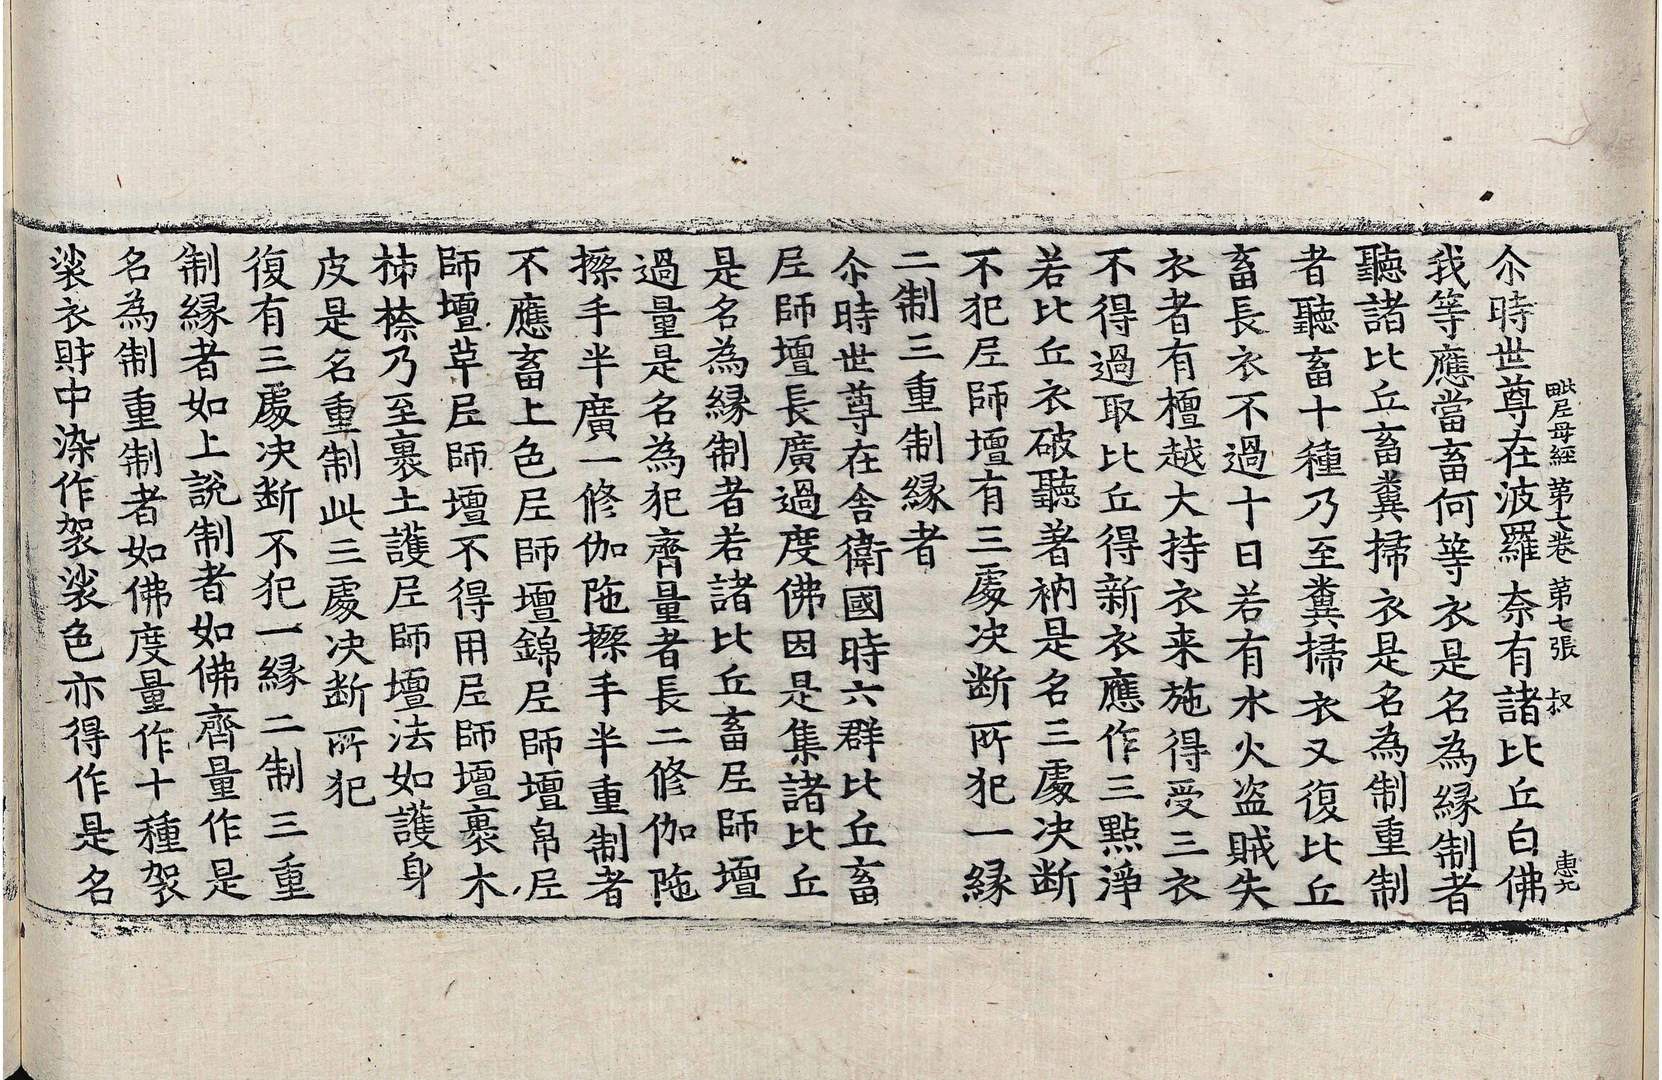 毗尼母經第七卷　第七張　叔　惠允
尒時世尊在波羅奈有諸比丘白佛
我等應當畜何等衣是名為縁制者
聽諸比丘畜糞掃衣是名為制重制
者聽畜十種乃至糞掃衣又復比丘
畜長衣不過十日若有水火盗賊失
衣者有檀越大持衣来施得受三衣
不得過取比丘得新衣應作三點淨
若比丘衣破聽著衲是名三處决断
不犯尼師壇有三處决断所犯一縁
二制三重制縁者
尒時世尊在舍衛國時六群比丘畜
尼師壇長廣過度佛因是集諸比丘
是名為縁制者若諸比丘畜尼師壇
過量是名為犯齊量者長二修伽陁
搩手半廣一修伽陁搩手半重制者
不應畜上色尼師壇錦尼師壇帛尼
師壇草尼師壇不得用尼師壇裹木
柹㮈乃至裹土護尼師壇法如護身
皮是名重制此三處决断所犯
復有三處决断不犯一縁二制三重
制縁者如上說制者如佛齊量作是
名為制重制者如佛度量作十種袈
裟衣財中染作袈裟色亦得作是名